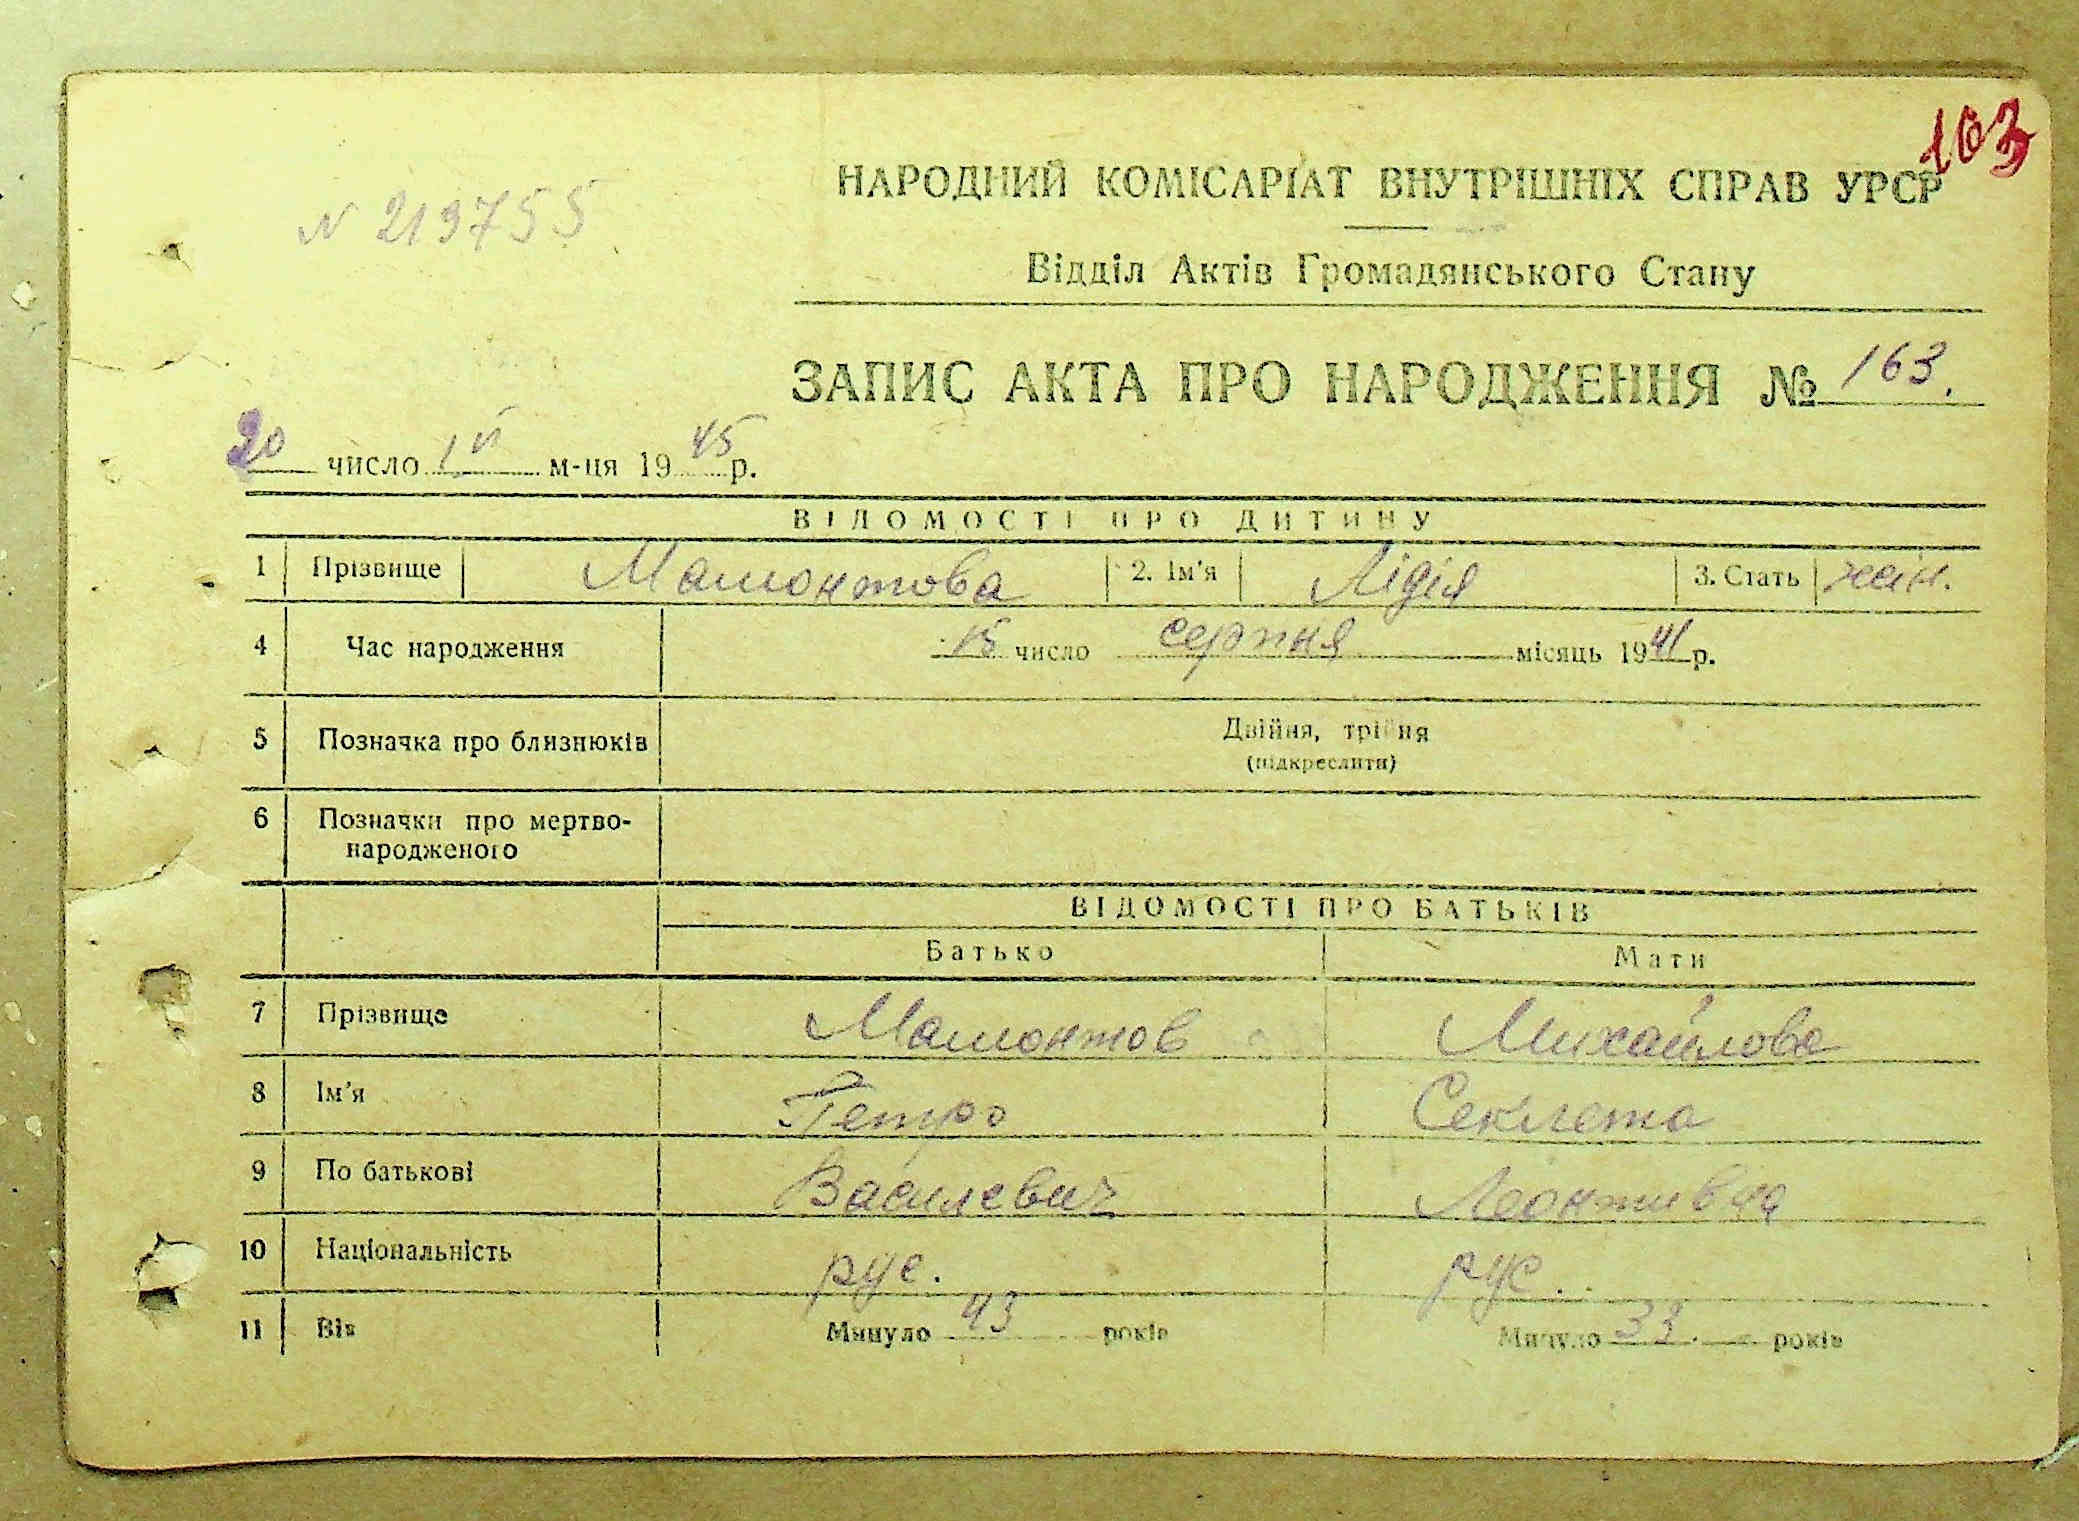 103
N 219755
НАРОДНИЙ КОМІСАРІАТ ВНУТРІШНІХ СПРАВ УРСР
Відділ Актів Громадянського Стану
ЗАПИС АКТА ПРО НАРОДЖЕННЯ № 163.
20 число м-ця 1945 р.
ВІДОМОСТІ ПРО ДИТИНУ
1 Прізвище Мамонтова 2. Ім'я Лідія 3. Стать жін.
4 Час народження 15 число серпня місяць 1941 р.
5 Позначка про близнюків Двійня, трійня
(підкреслити)
6 Позначки про мертво-
народженого
ВІДОМОСТІ ПРО БАТЬКІВ
Батько Мати
7 Прізвище Мамонтов Михайлова
8 Ім'я Петро Секлета
9 По батькові Василевич Леонтивна
10 Національність рус. рус.
11 Вік Минуло 43 років Минуло 33 років